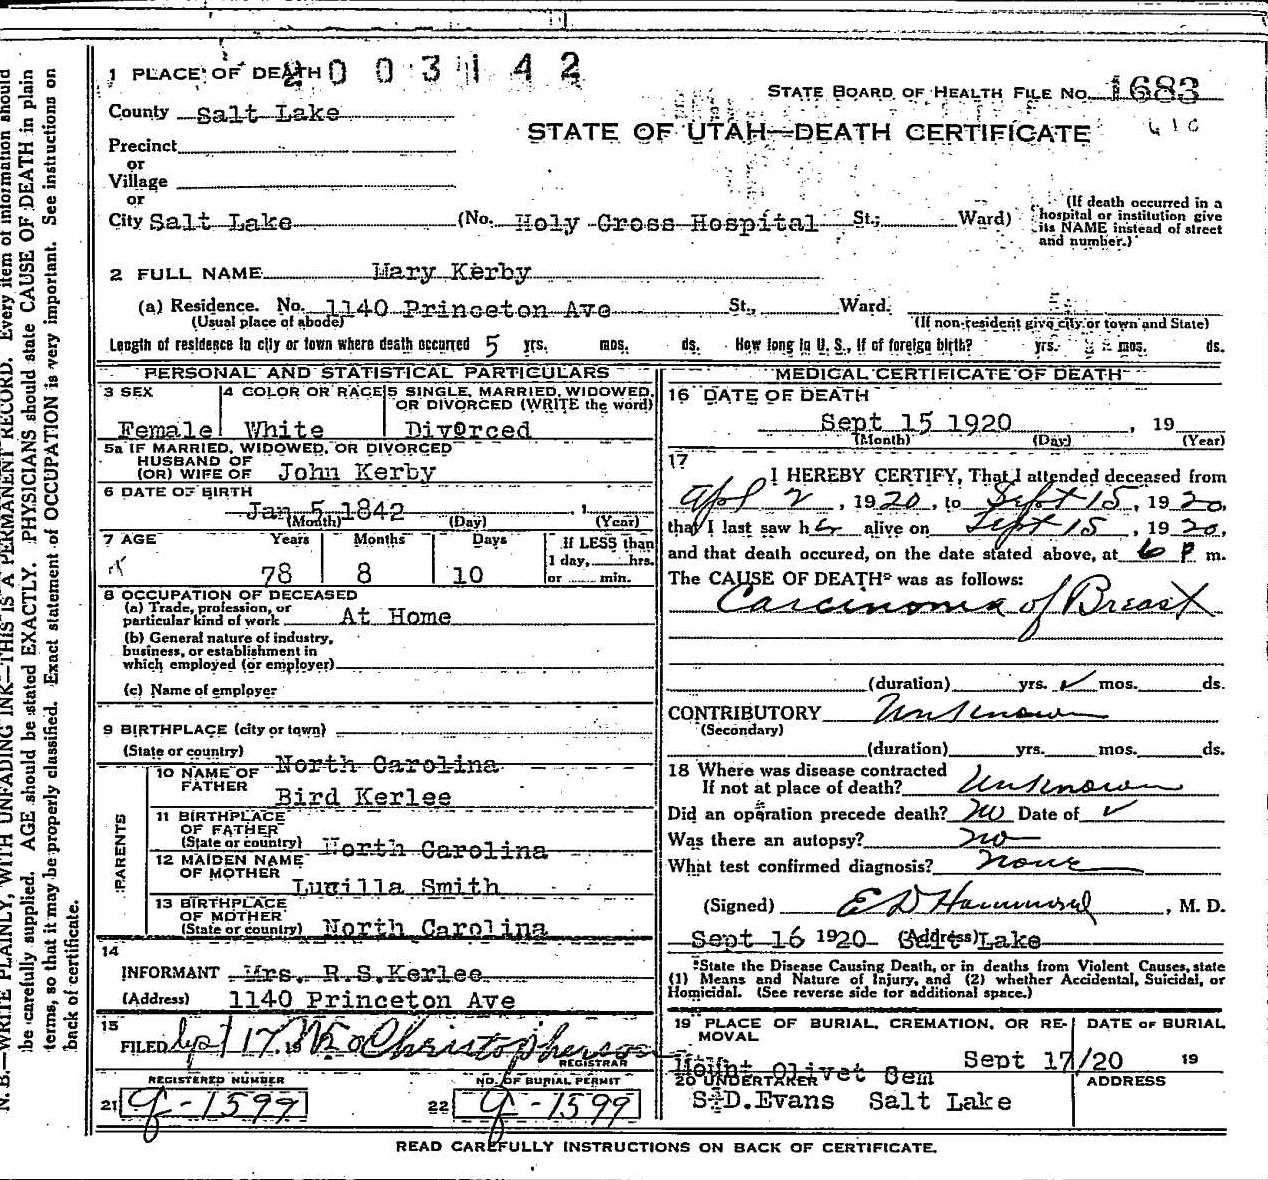 1 PLACE OF DEATH 2003142
STATE BOARD OF HEALTH FILE NO. 1683
County Salt Lake
STATE OF UTAH—DEATH CERTIFICATE
Precinct
or
Village
or
City Salt Lake (No. Holy Cross Hospital St.; Ward)
(If death occurred in a
hospital or institution give
its NAME instead of street
and number.)
2 FULL NAME Mary Kerby
(a) Residence. No. 1140 Princeton Ave St., Ward.
(Usual place of abode) (If non-resident give city or town and State)
Length of residence in city or town where death occurred 5 yrs. mos. ds. How long in U. S., if of foreign birth? yrs. mos. ds.
PERSONAL AND STATISTICAL PARTICULARS
3 SEX 4 COLOR OR RACE 5 SINGLE, MARRIED, WIDOWED,
OR DIVORCED (WRITE the word)
Female White Divorced
5a IF MARRIED, WIDOWED, OR DIVORCED
HUSBAND OF
(OR) WIFE OF John Kerby
6 DATE OF BIRTH
Jan 5 1842 , 1
(Month) (Day) (Year)
7 AGE Years Months Days If LESS than
1 day, hrs.
78 8 10 or min.
8 OCCUPATION OF DECEASED
(a) Trade, profession, or
particular kind of work At Home
(b) General nature of industry,
business, or establishment in
which employed (or employer)
(c) Name of employer
9 BIRTHPLACE (city or town)
(State or country) North Carolina
PARENTS
10 NAME OF
FATHER Bird Kerlee
11 BIRTHPLACE
OF FATHER
(State or country) North Carolina
12 MAIDEN NAME
OF MOTHER Lucilla Smith
13 BIRTHPLACE
OF MOTHER
(State or country) North Carolina
14
INFORMANT Mrs. R.S.Kerlee
(Address) 1140 Princeton Ave
15
FILED Sept 17 19 Christopherson
REGISTRAR
REGISTERED NUMBER NO. OF BURIAL PERMIT
21 Q-1599 22 Q-1599
MEDICAL CERTIFICATE OF DEATH
16 DATE OF DEATH
Sept 15 1920 , 19
(Month) (Day) (Year)
17
I HEREBY CERTIFY, That I attended deceased from
Apl 2, 1920, to Sept 15, 1920,
that I last saw her alive on Sept 15, 1920,
and that death occured, on the date stated above, at 6 P m.
The CAUSE OF DEATH* was as follows:
Carcinoma of Breast
(duration) yrs. mos. ds.
CONTRIBUTORY Unknown
(Secondary)
(duration) yrs. mos. ds.
18 Where was disease contracted
If not at place of death? Unknown
Did an operation precede death? No Date of
Was there an autopsy? no
What test confirmed diagnosis? none
(Signed) E D Hammond, M. D.
Sept 16 1920 (Address) Salt Lake
*State the Disease Causing Death, or in deaths from Violent Causes, state
(1) Means and Nature of Injury, and (2) whether Accidental, Suicidal, or
Homicidal. (See reverse side for additional space.)
19 PLACE OF BURIAL, CREMATION, OR RE- DATE OF BURIAL
MOVAL
Mount Olivet Cem Sept 17/20 19
20 UNDERTAKER ADDRESS
S.D.Evans Salt Lake
READ CAREFULLY INSTRUCTIONS ON BACK OF CERTIFICATE.
N. B.—WRITE PLAINLY, WITH UNFADING INK—THIS IS A PERMANENT RECORD. Every item of information should
be carefully supplied. AGE should be stated EXACTLY. PHYSICIANS should state CAUSE OF DEATH in plain
terms, so that it may be properly classified. Exact statement of OCCUPATION is very important. See instructions on
back of certificate.